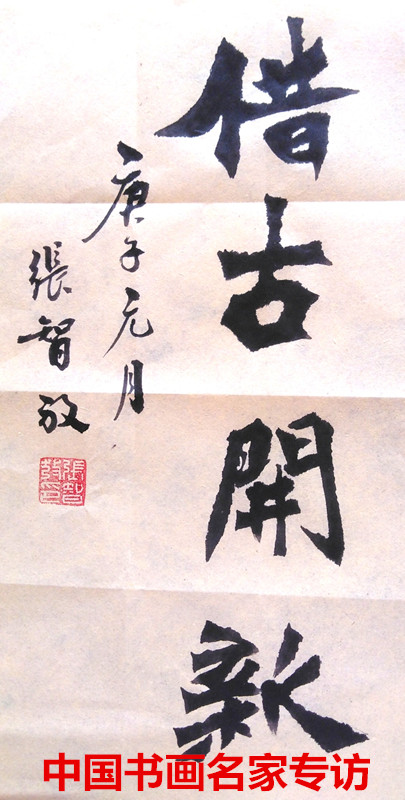 借古開新
庚子元月
張智敌
張智敌印
中国书画名家专访